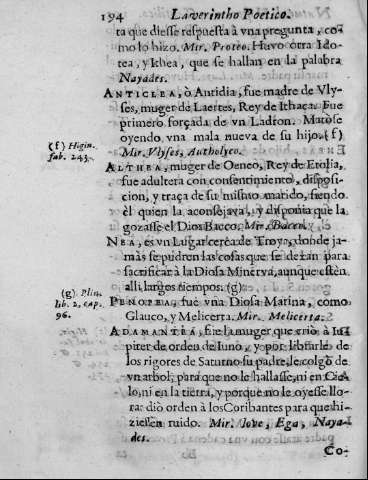 194 Lawerintho Poetico.
ta que diesse respuesta à vna pregunta, co-
mo lo hizo. Mir. Proteo. Huvo otra Ido-
tea, y Ithea, que se hallan en la palabra
Nayades.
ANTICLEA, ò Antidia, fue madre de Vly-
ses, muger de Laertes, Rey de Ithaca. Fue
primero forçada de vn Ladron. Matòse
oyendo vna mala nueva de su hijo. (f)
(f) Higin.
fab. 243.
Mir. Vlyses,Autholyco.
ALTHEA, muger de Oeneo, Rey de Etolia,
fue adultera con consentimiento, disposi-
cion, y traça de su mismo marido, siendo
èl quien la aconsejava, y disponia que la
gozasse el Dios Bacco. Mir. Bacco.
NEA, es vn Lugar cerca de Troya, donde ja-
màs se pudren las cosas que se dexan para
sacrificar à la Diosa Minerva, aunque estèn
alli largos tiempos. (g)
(g) Plin.
lib. 2, cap.
96.
PENOPEA, fue vna Diosa Marina, como
Glauco, y Melicerta. Mir. Melicerta.
ADAMANTEA, fue la muger que criò à Iu-
piter de orden de Iuno, y por librarle de
los rigores de Saturno su padre, le colgò de
vn arbol, para que no le hallasse, ni en Cie-
lo, ni en la tierra, y porque no le oyesse llo-
rar diò orden à los Coribantes para que hi-
ziessen ruido. Mir. Iove, Ega, Naya-
des.
Co-